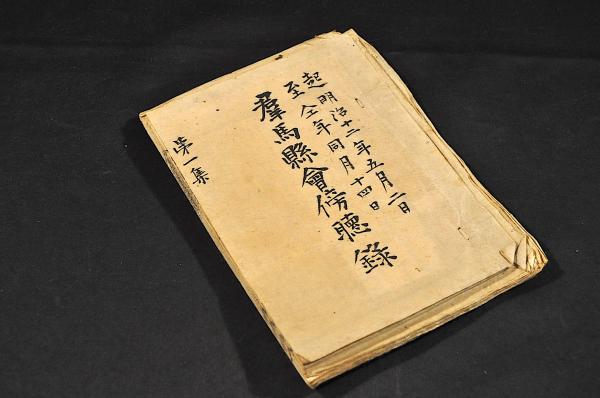 起明治十二年五月二日
至仝年同月十四日
羣馬縣會傍聽錄
第一集